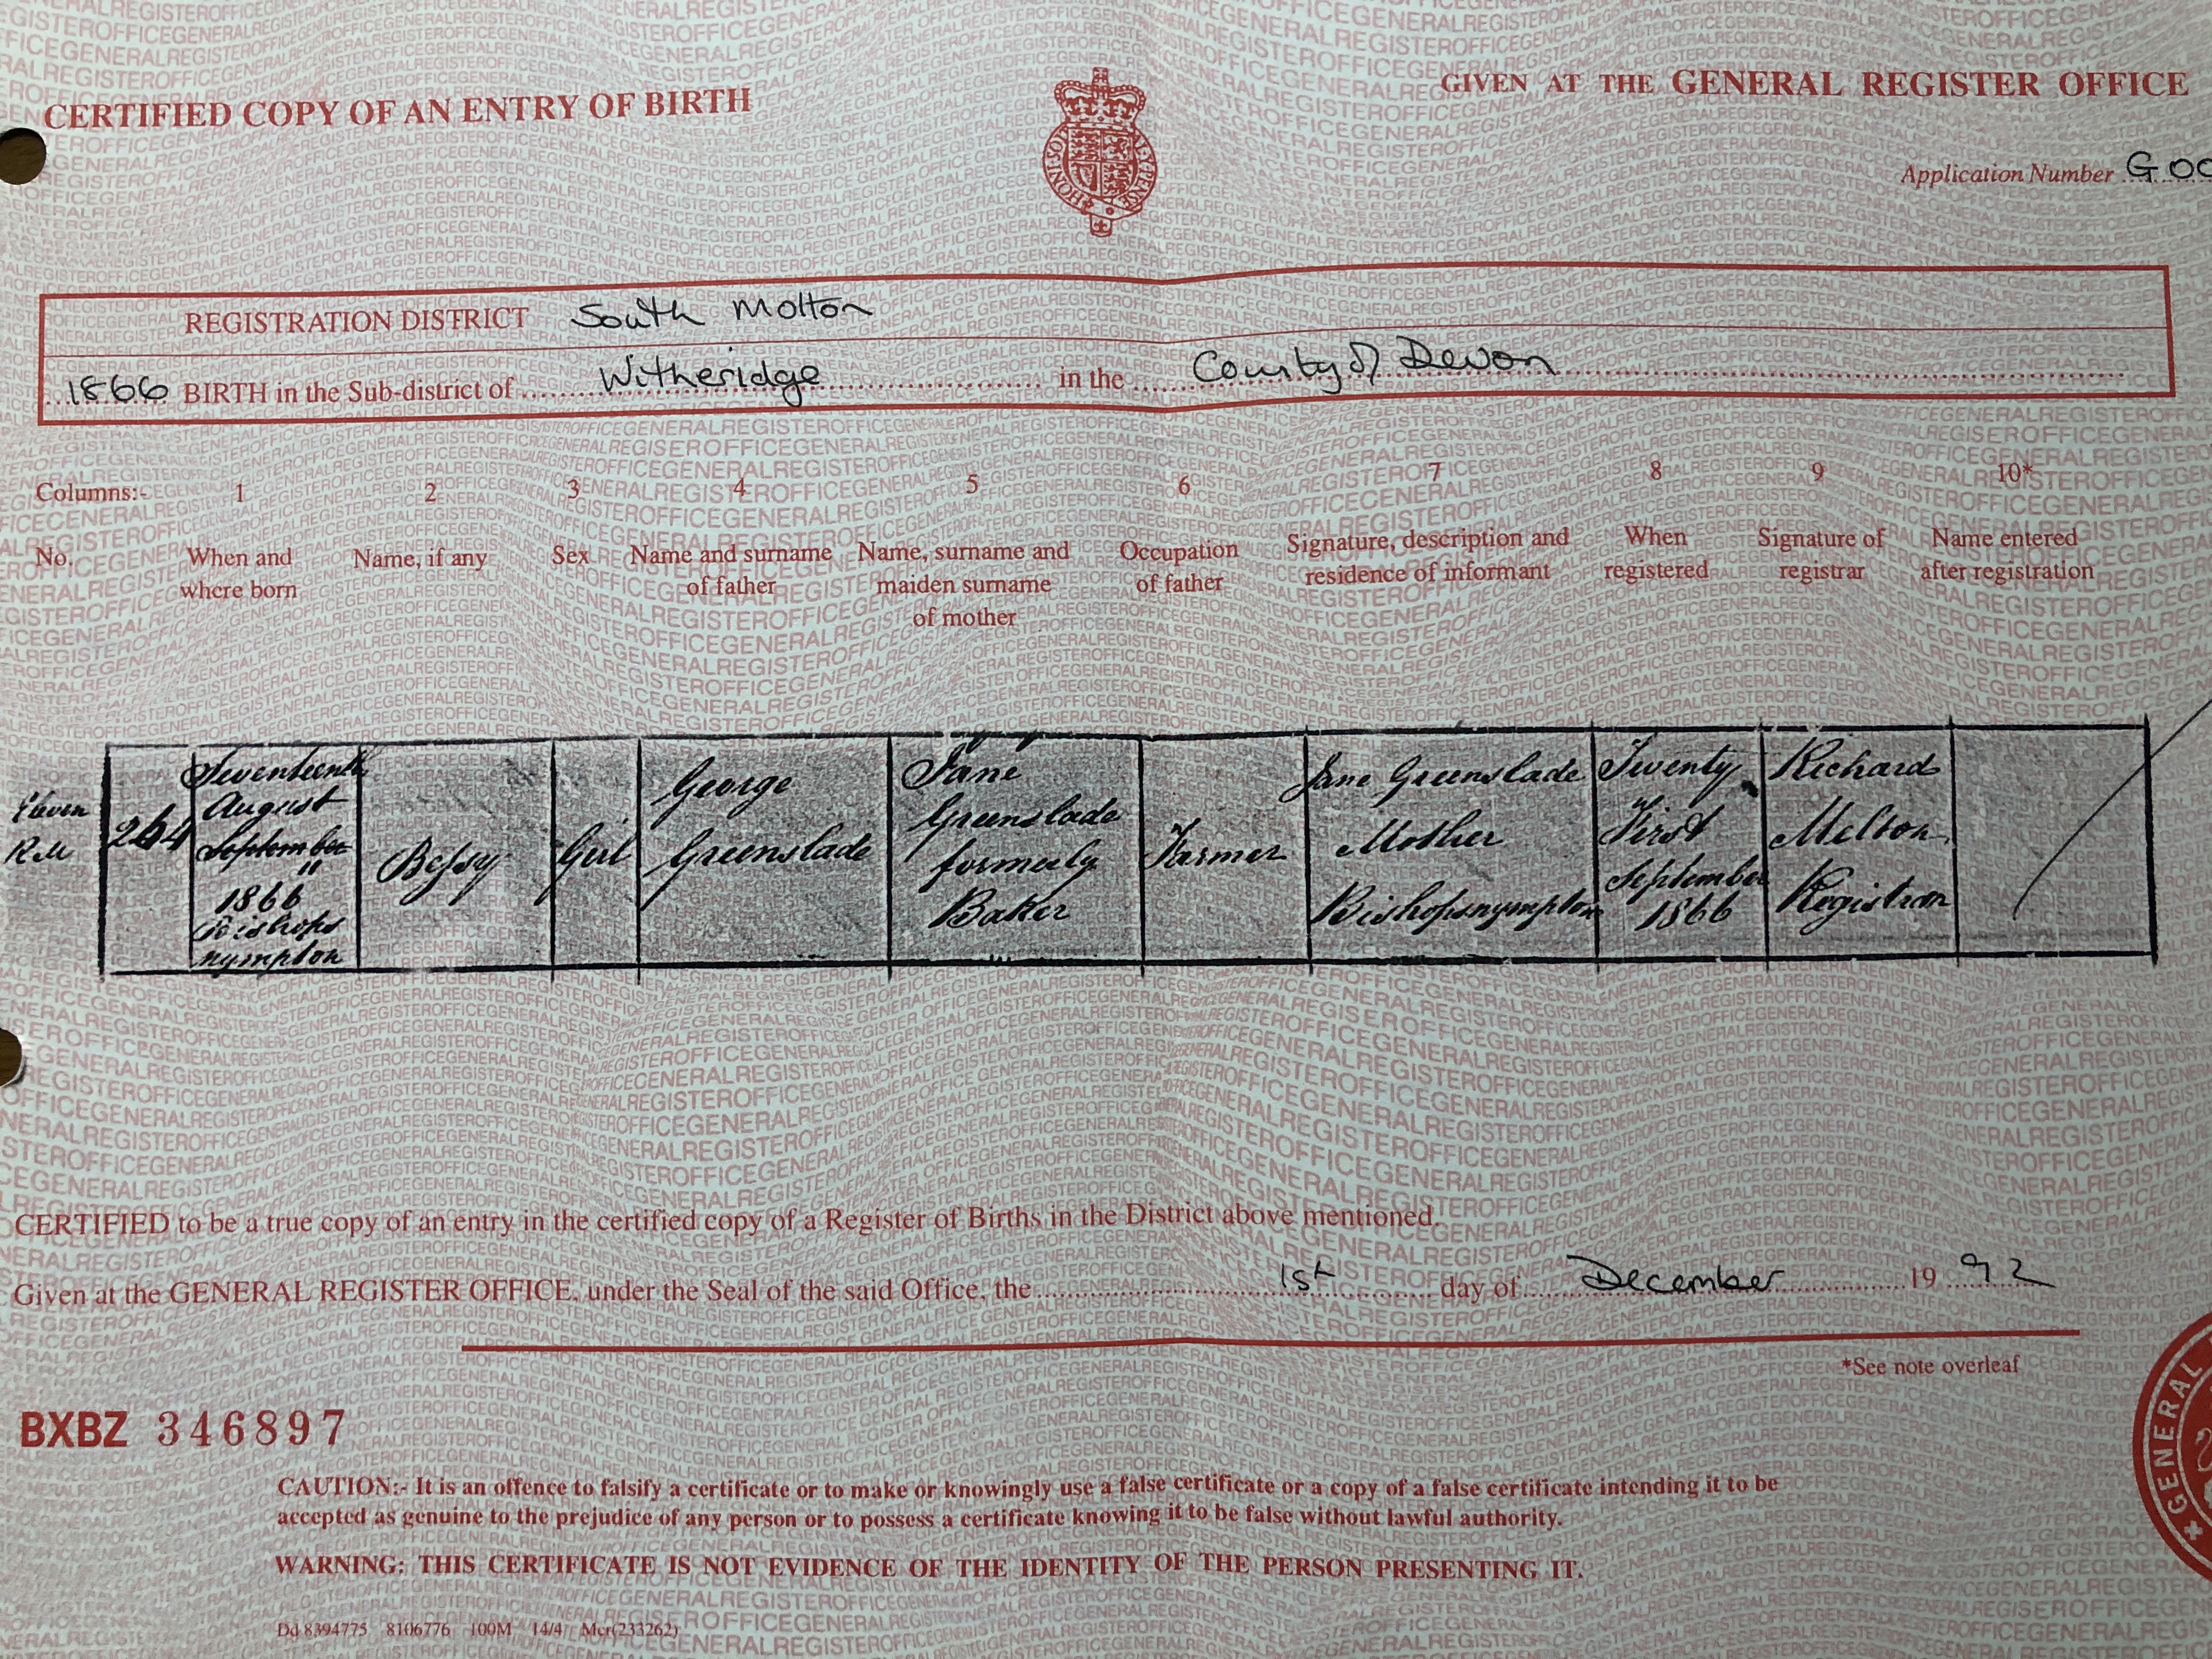 CERTIFIED COPY OF AN ENTRY OF BIRTH
GIVEN AT THE GENERAL REGISTER OFFICE
HONI SOIT QUI MAL Y PENSE
Application Number G00
REGISTRATION DISTRICT South Molton
1866 BIRTH in the Sub-district of Witheridge in the County of Devon
Columns:- 1 2 3 4 5 6 7 8 9 10*
No. When and where born Name, if any Sex Name and surname of father Name, surname and maiden surname of mother Occupation of father Signature, description and residence of informant When registered Signature of registrar Name entered after registration
Eleven
RM
264
Seventeenth
August
September
"
1866
Bishops
nympton
Bessy
Girl
George
Greenslade
Jane
Greenslade
formerly
Baker
Farmer
Jane Greenslade
Mother
Bishopsnympton
Twenty
First
September
1866
Richard
Melton
Registrar
CERTIFIED to be a true copy of an entry in the certified copy of a Register of Births in the District above mentioned.
Given at the GENERAL REGISTER OFFICE, under the Seal of the said Office, the 1st day of December 1992
*See note overleaf
BXBZ 346897
GENERAL
CAUTION:- It is an offence to falsify a certificate or to make or knowingly use a false certificate or a copy of a false certificate intending it to be
accepted as genuine to the prejudice of any person or to possess a certificate knowing it to be false without lawful authority.
WARNING: THIS CERTIFICATE IS NOT EVIDENCE OF THE IDENTITY OF THE PERSON PRESENTING IT.
Dd 8394775 8106776 100M 14/4 Mcr(233262)